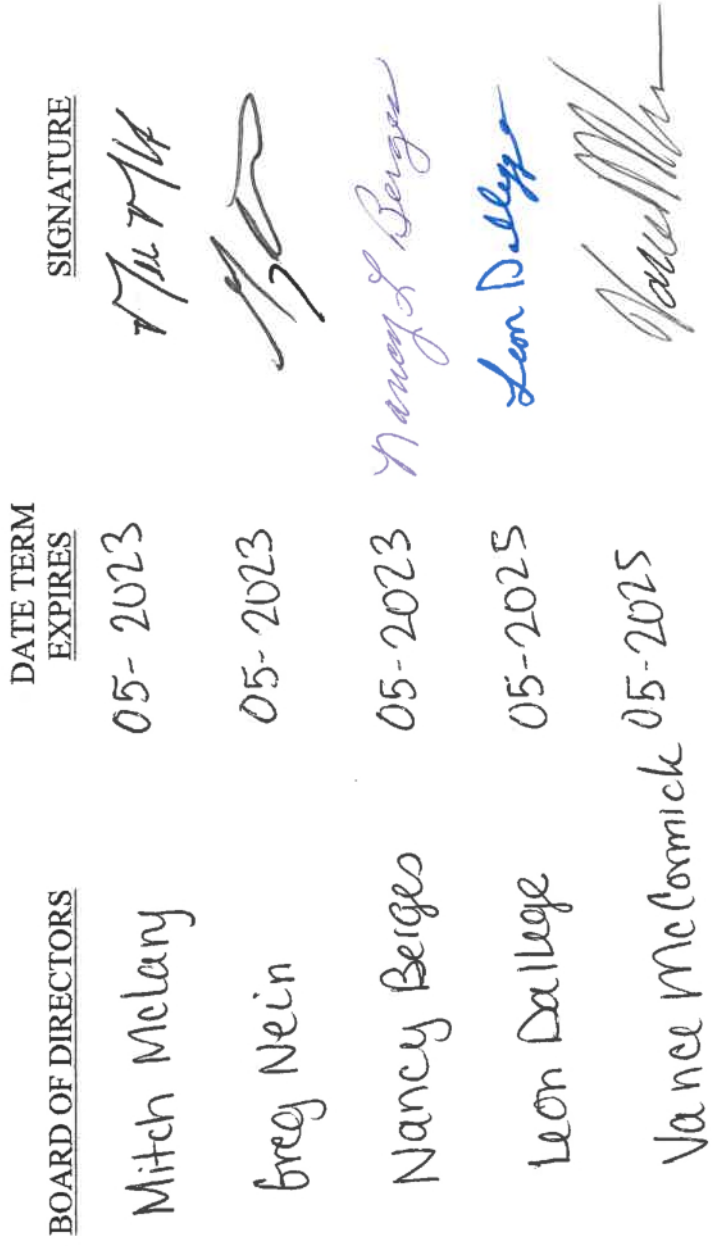 BOARD OF DIRECTORS DATE TERM EXPIRES SIGNATURE
Mitch McLary 05-2023
Greg Nein 05-2023
Nancy Berges 05-2023 Nancy L Berges
Leon Dallege 05-2025 Leon Dallege
Vance McCormick 05-2025